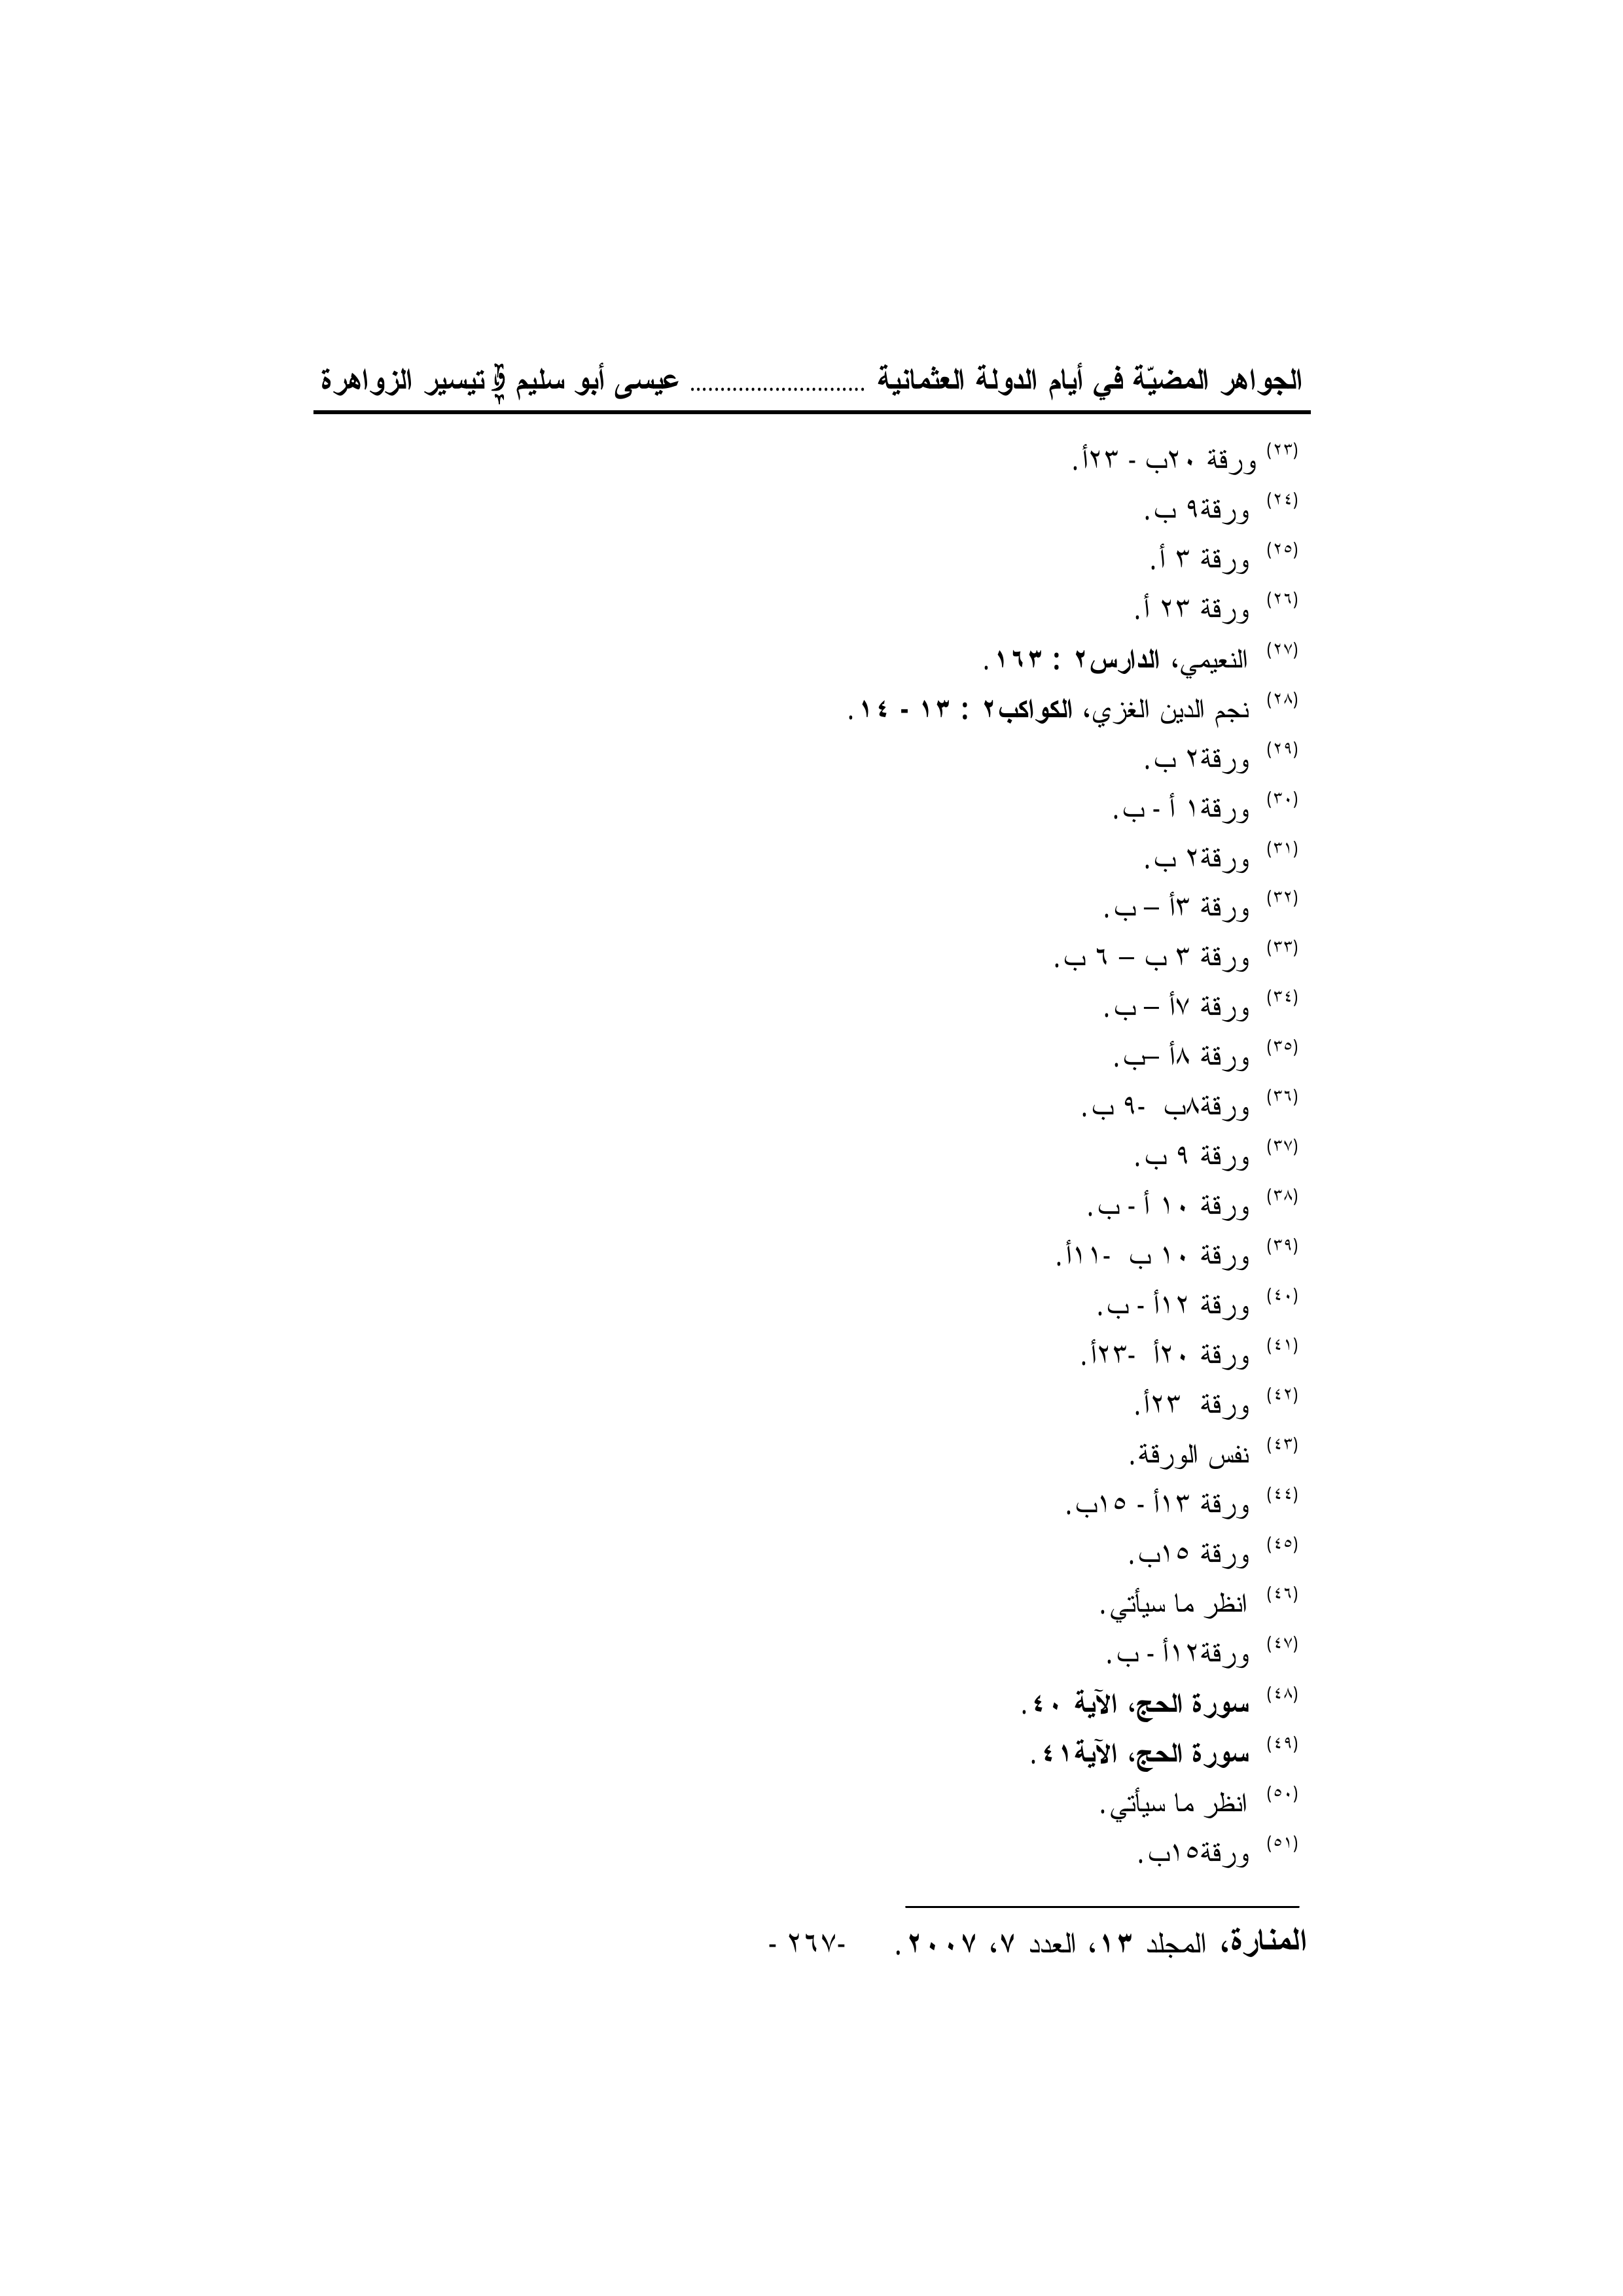 الجواهر المضيّة في أيام الدولة العثمانية ............................. عيسى أبو سليم و تيسير الزواهرة
(٢٣) ورقة ٢٠ب - ٢٣أ.
(٢٤) ورقة٩ ب.
(٢٥) ورقة ٣ أ.
(٢٦) ورقة ٢٣ أ.
(٢٧) النعيمي، الدارس٢ : ١٦٣.
(٢٨) نجم الدين الغزي، الكواكب٢ : ١٣ - ١٤.
(٢٩) ورقة٢ ب.
(٣٠) ورقة١ أ - ب.
(٣١) ورقة٢ ب.
(٣٢) ورقة ٣أ – ب.
(٣٣) ورقة ٣ ب – ٦ ب.
(٣٤) ورقة ٧أ – ب.
(٣٥) ورقة ٨أ –ب.
(٣٦) ورقة٨ب -٩ ب.
(٣٧) ورقة ٩ ب.
(٣٨) ورقة ١٠ أ - ب.
(٣٩) ورقة ١٠ ب -١١أ.
(٤٠) ورقة ١٢أ - ب.
(٤١) ورقة ٢٠أ -٢٣أ.
(٤٢) ورقة ٢٣أ.
(٤٣) نفس الورقة.
(٤٤) ورقة ١٣أ - ١٥ب.
(٤٥) ورقة ١٥ب.
(٤٦) انظر ما سيأتي.
(٤٧) ورقة١٢أ - ب.
(٤٨) سورة الحج، الآية ٤٠.
(٤٩) سورة الحج، الآية٤١.
(٥٠) انظر ما سيأتي.
(٥١) ورقة١٥ب.
المنارة، المجلد ١٣، العدد ٧، ٢٠٠٧. -٢٦٧ -